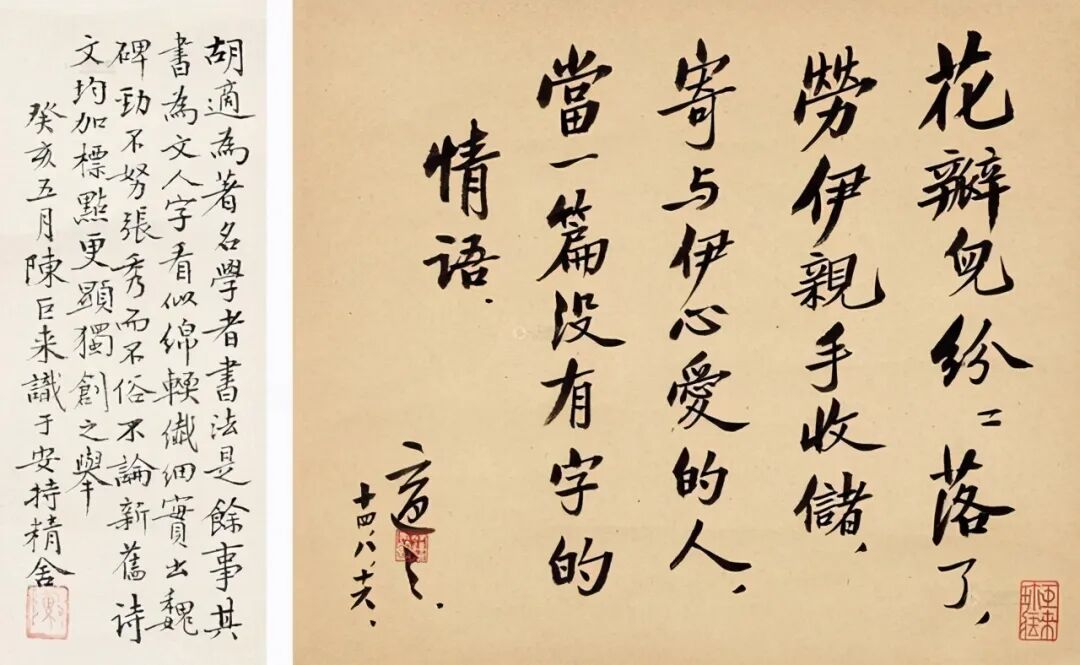 花瓣兒紛〻落了，
勞伊親手收儲，
寄与伊心愛的人，
當一篇没有字的
情语．
適之．
十四、八、十六、
胡適為著名學者書法是餘事其
書為文人字看似綿輭纖細實出魏
碑勁不努張秀而不俗不論新舊詩
文均加標點更顯獨創之舉
癸亥五月陳巨来識于安持精舍